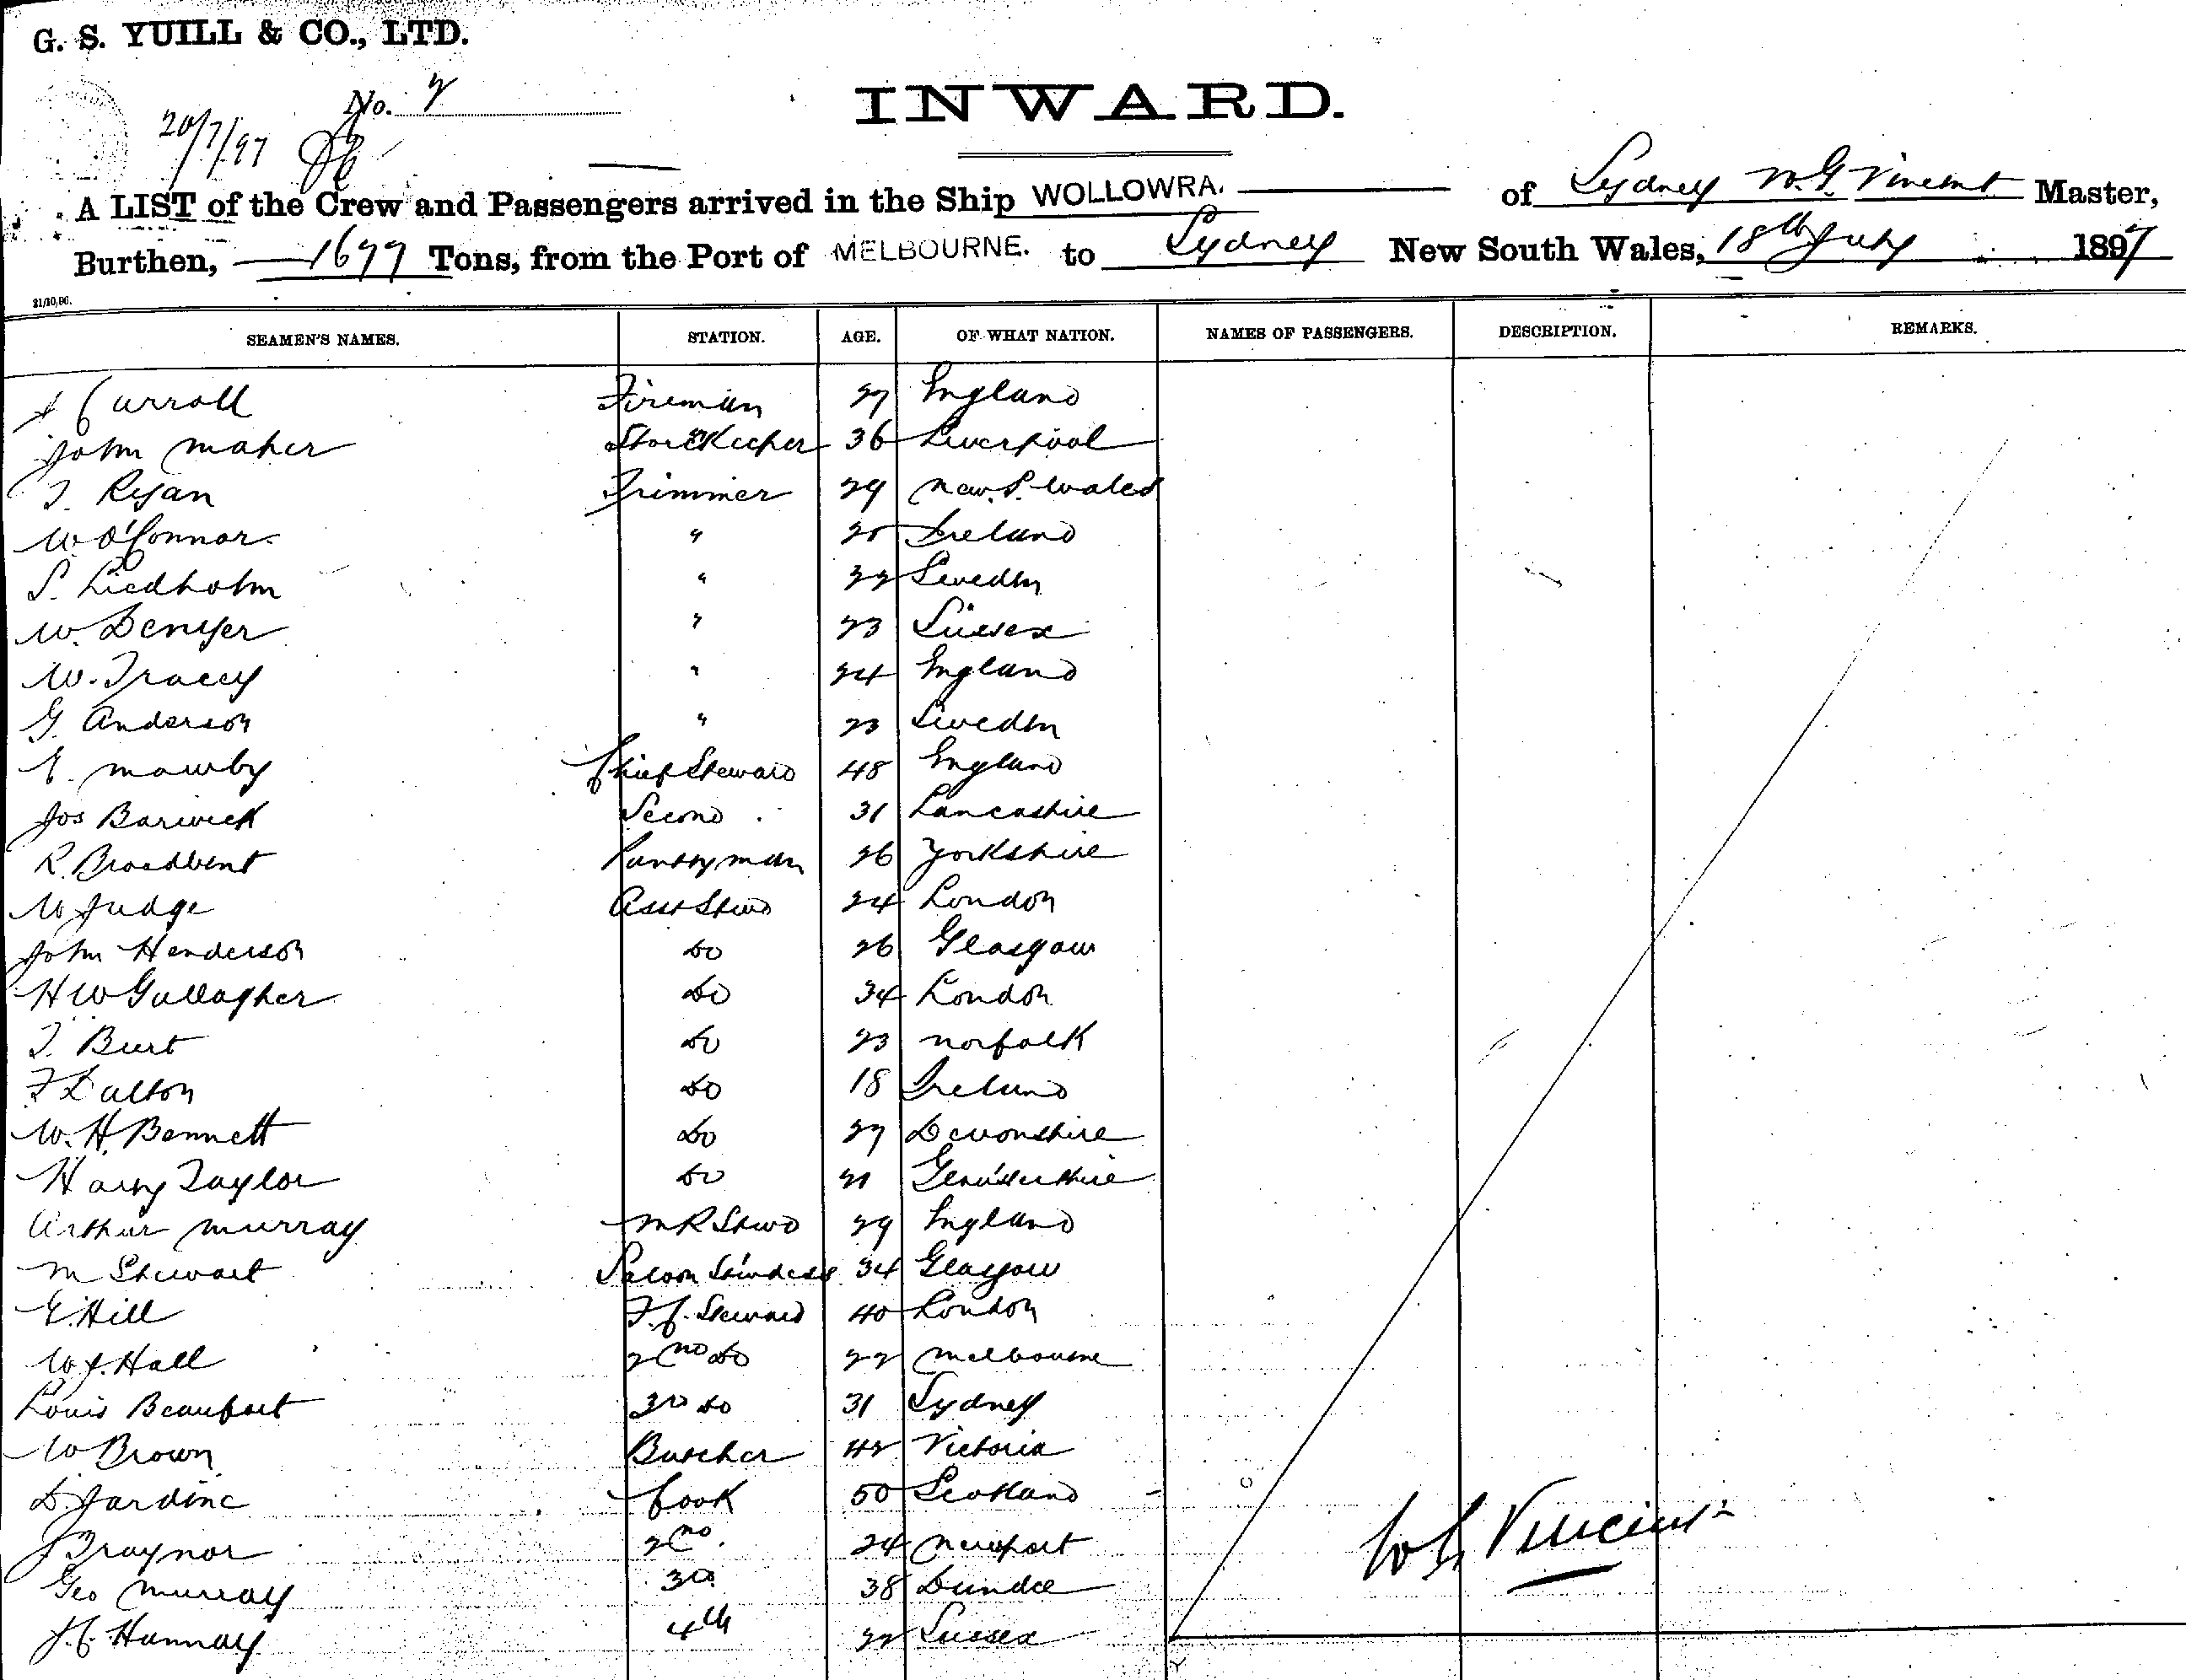 G. S. YUILL & CO., LTD.
No. 2
INWARD.
20/7/97
A LIST of the Crew and Passengers arrived in the Ship WOLLOWRA. of Sydney W.G. Vincent Master,
Burthen, 1699 Tons, from the Port of MELBOURNE. to Sydney New South Wales, 18th July 1897
21/10,96.
SEAMEN'S NAMES. STATION. AGE. OF WHAT NATION. NAMES OF PASSENGERS. DESCRIPTION. REMARKS.
J Carroll Fireman 27 England
John Maher Storekeeper 36 Liverpool
T. Ryan Trimmer 29 New S. Wales
W O'Connor " Ireland
S. Liedholm " 32 Sweden
W. Denyer " 23 Sussex
W. Tracey " 24 England
G. Anderson " 23 Sweden
E. Mawby Chief Steward 48 England
Jos Barwick Second 31 Lancashire
R. Broadbent Pantryman 26 Yorkshire
W Judge Asst Stwd 24 London
John Henderson Do 26 Glasgow
H W Gallagher Do 34 London
T. Burt Do 23 Norfolk
F Dalton Do 18 Ireland
W. H. Bennett Do 27 Devonshire
Harry Taylor Do 21 Glou'stershire
Arthur Murray M R Stwd 29 England
M Stewart Saloon St'wdess 34 Glasgow
E. Hill F. C. Steward 40 London
W J. Hall 2nd Do 22 Melbourne
Louis Beaufort 3rd Do 31 Sydney
W Brown Butcher 42 Victoria
D. Jardine Cook 50 Scotland
J Traynor 2nd. 24 Newport
Geo Murray 3rd 38 Dundee
J. C. Hannay 4th 22 Sussex
W G Vincent